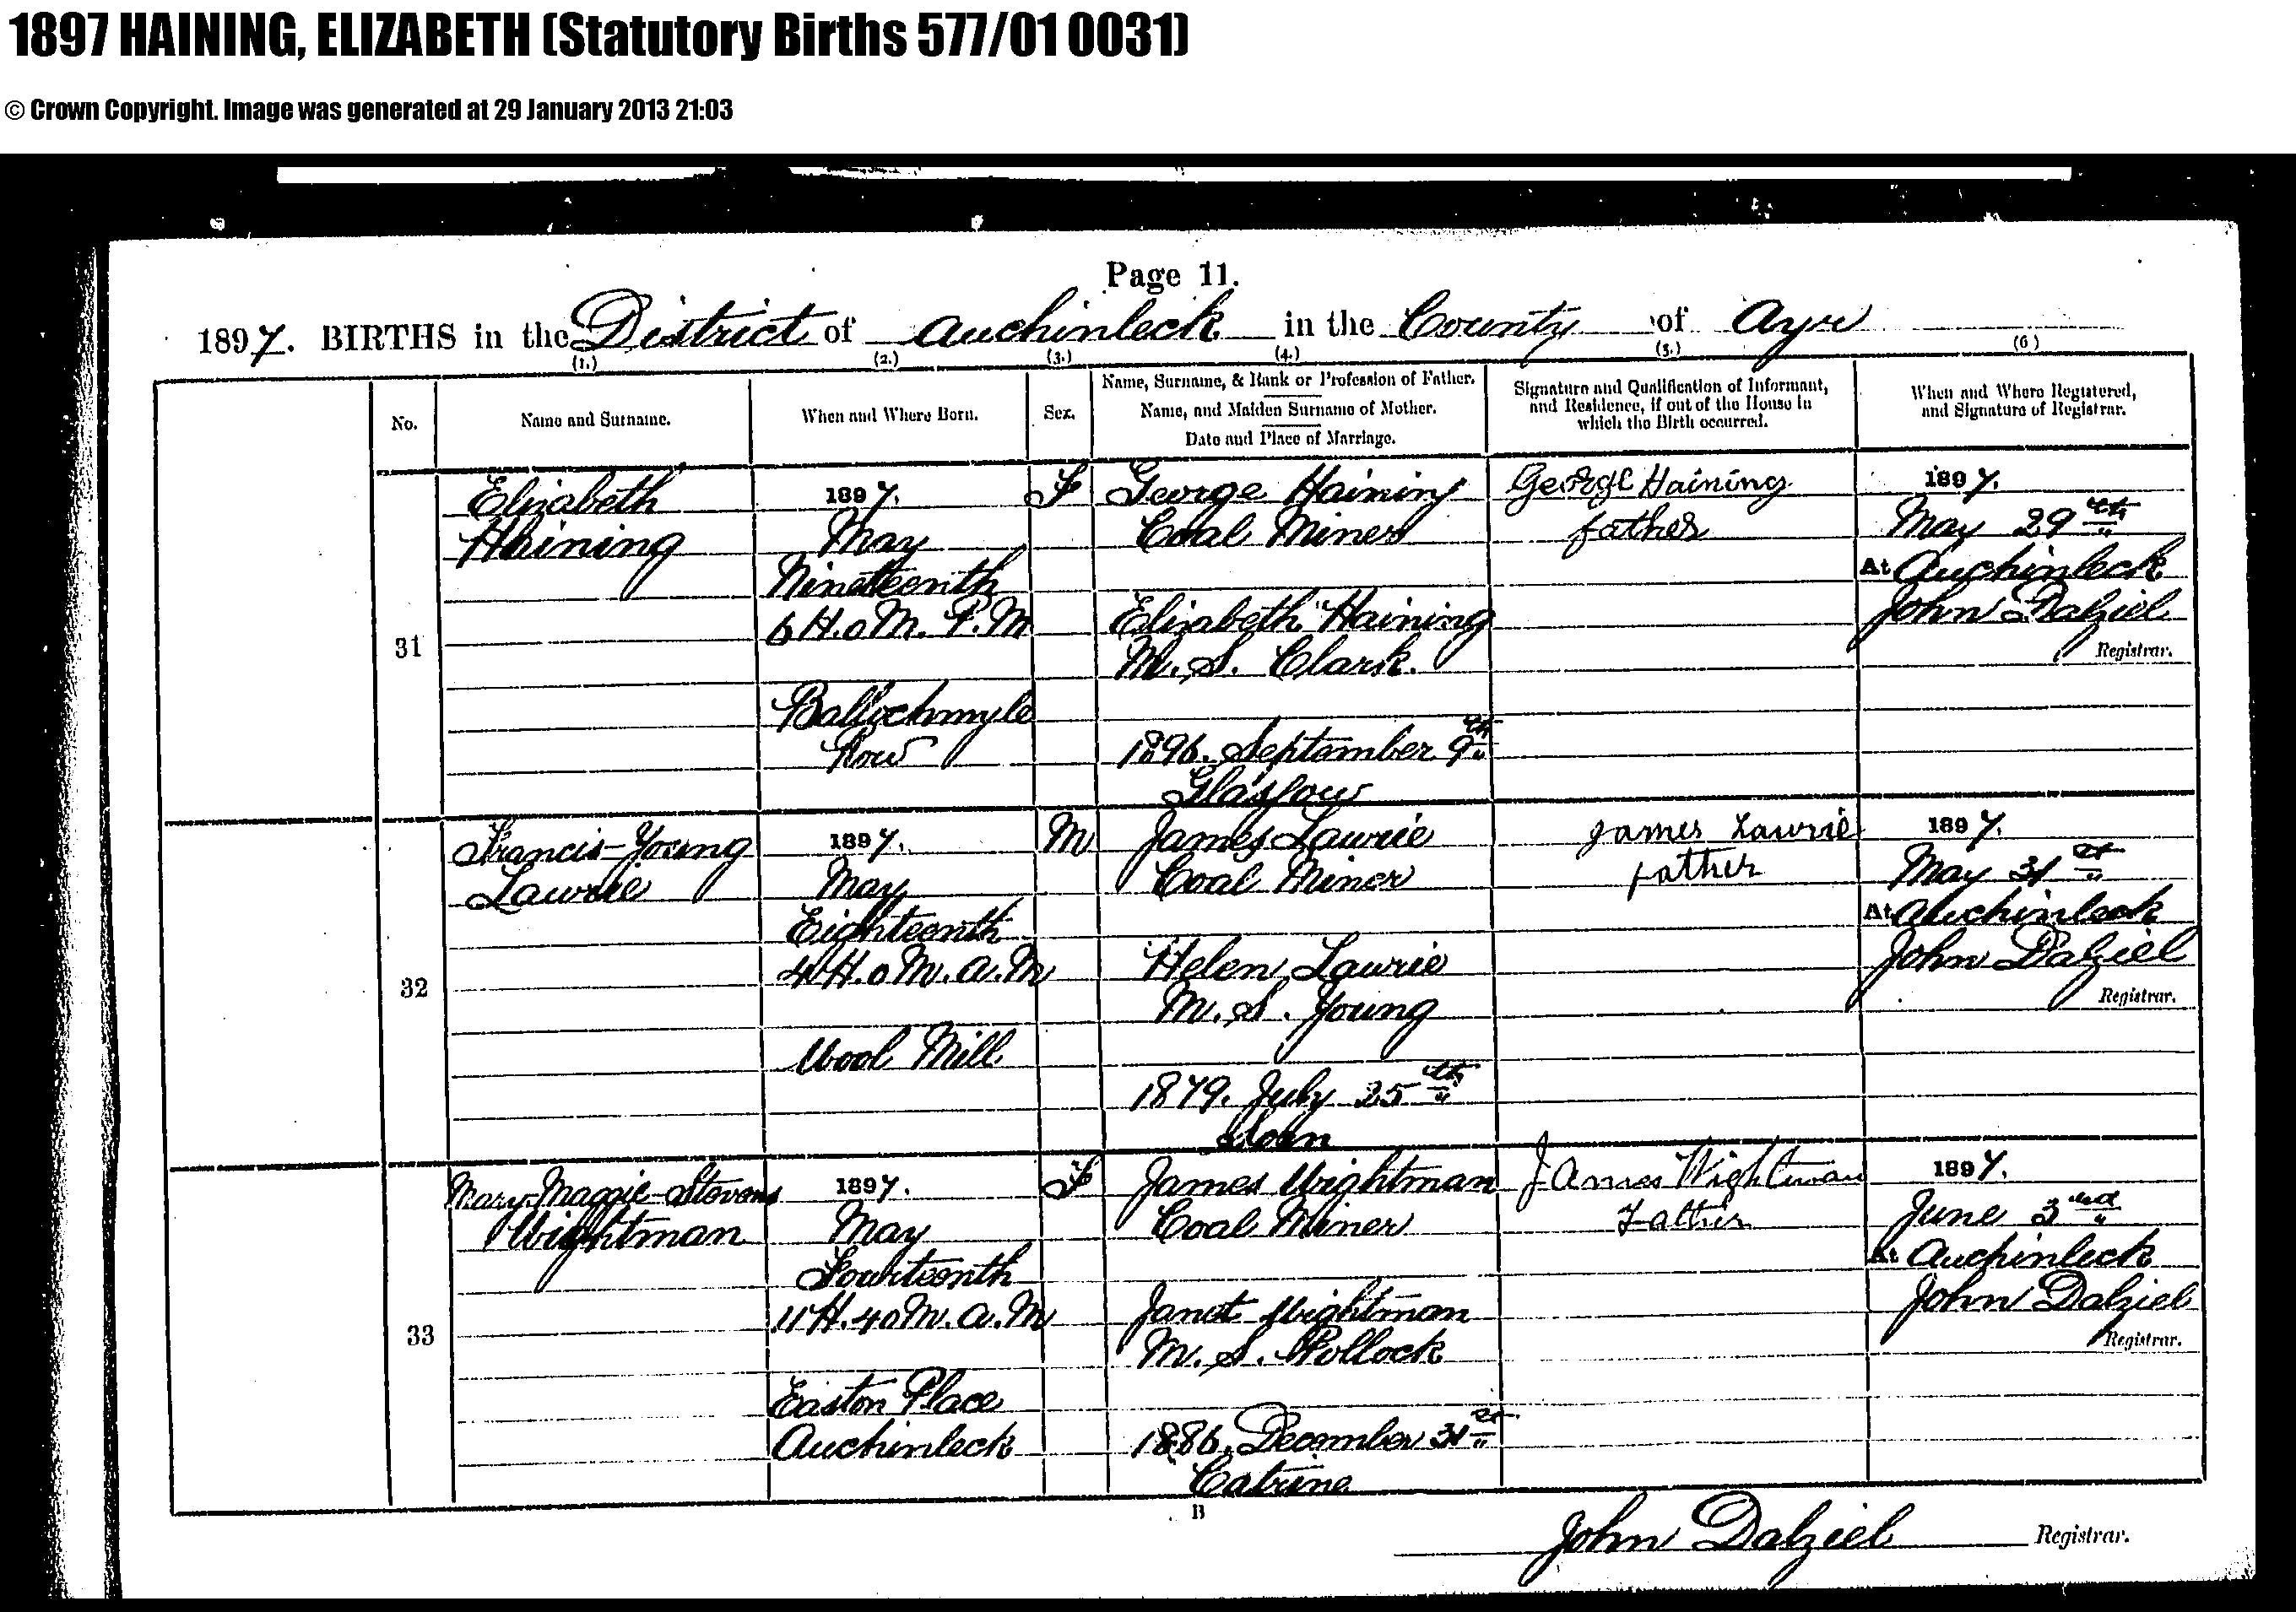 1897 HAINING, ELIZABETH (Statutory Births 577/01 0031)
© Crown Copyright. Image was generated at 29 January 2013 21:03
Page 11.
1897. BIRTHS in the District of Auchinleck in the County of Ayr
(1.) (2.) (3.) (4.) (5.) (6)
No.
Name and Surname.
When and Where Born.
Sex.
Name, Surname, & Rank or Profession of Father.
Name, and Maiden Surname of Mother.
Date and Place of Marriage.
Signature and Qualification of Informant,
and Residence, if out of the House in
which the Birth occurred.
When and Where Registered,
and Signature of Registrar.
31
Elizabeth
Haining
1897.
May
Nineteenth
6 H. 0 M. P.M
Ballochmyle
Row
F
George Haining
Coal Miner
Elizabeth Haining
M. S. Clark.
1896. September 9th
Glasgow
George Haining
father
1897.
May 29th
At Auchinleck
John Dalziel
Registrar.
32
Francis Young
Lawrie
1897.
May
Eighteenth
4 H. 0 M. A.M
Wool Mill
M
James Lawrie
Coal Miner
Helen Lawrie
M. S. Young
1879. July 25th
Sorn
James Lawrie
father
1897.
May 31st
At Auchinleck
John Dalziel
Registrar.
33
Mary Maggie Stevens
Wightman
1897.
May
Fourteenth
11 H. 40 M. A.M
Easton Place
Auchinleck
F
James Wightman
Coal Miner
Janet Wightman
M. S. Pollock
1886. December 31st
Catrine
James Wightman
Father
1897.
June 3rd
At Auchinleck
John Dalziel
Registrar.
B
John Dalziel Registrar.